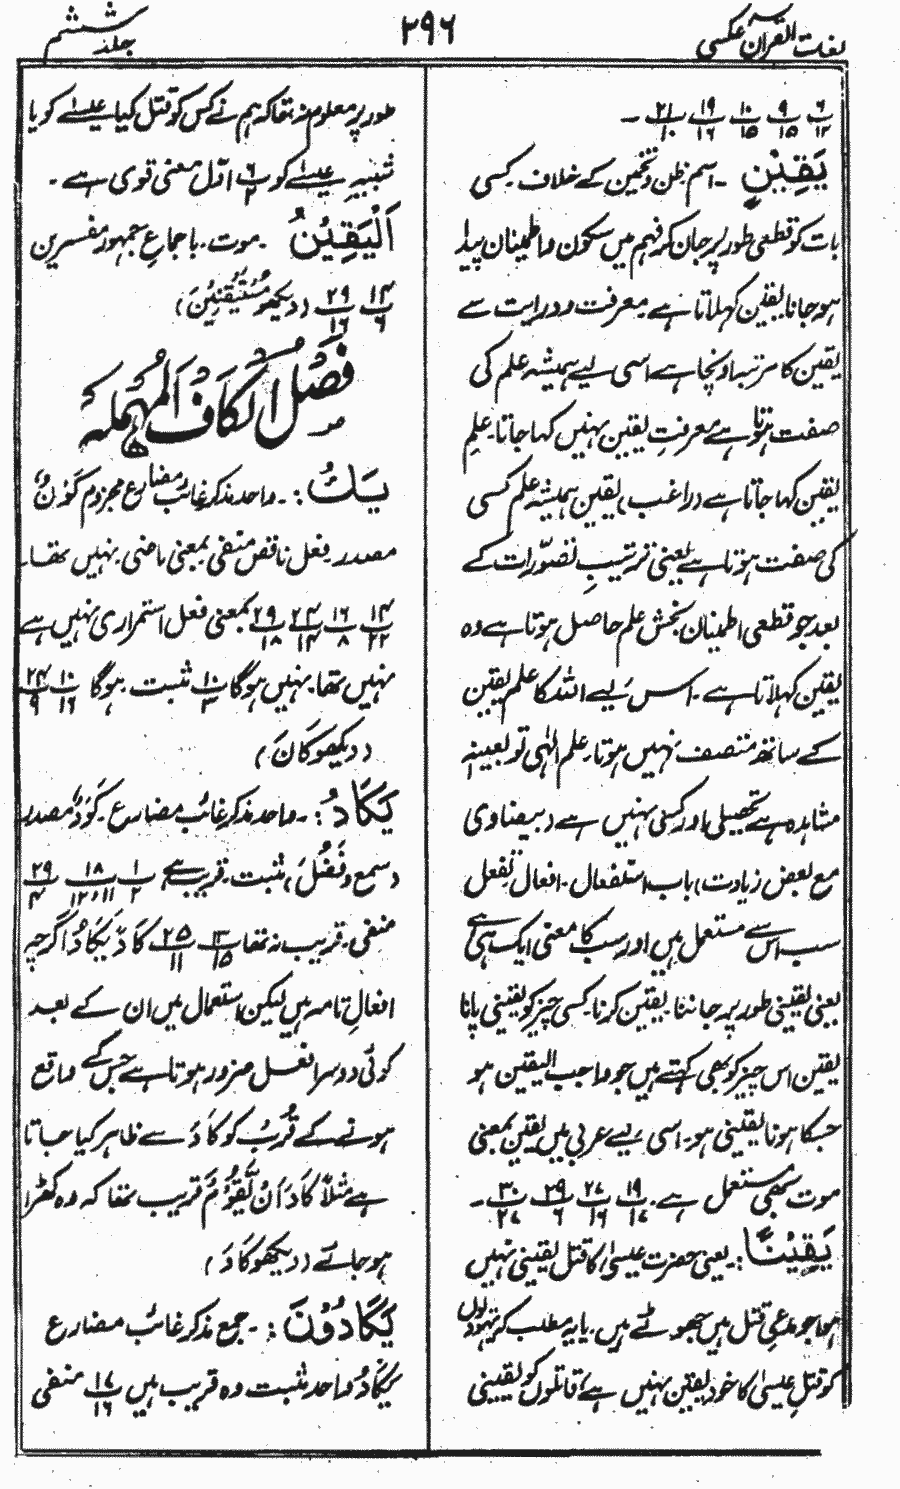 لغات القرآن عکسی
۲۹۶
جلد ششم
۶/۱۲ ۹/۱۵ ۱۰/۱۵ ۱۹/۱۶ ۲۱/۱۰ ۔
یَقِیْنٍ ۔ اسم ظن و تخمین کے خلاف ۔ کسی
بات کو قطعی طور پر جان کر فہم میں سکون و اطمینان پیدا
ہو جانا یقین کہلاتا ہے ۔ معرفت و درایت سے
یقین کا مرتبہ اونچا ہے اسی لیے ہمیشہ علم کی
صفت ہوتا ہے معرفتِ یقین نہیں کہا جاتا ۔ علمِ
یقین کہا جاتا ہے (راغب) یقین ہمیشہ علم کسی
کی صفت ہوتا ہے یعنی ترتیبِ تصوّرات کے
بعد جو قطعی اطمینان بخش علم حاصل ہوتا ہے وہ
یقین کہلاتا ہے ۔ اس لیے اللہ کا علم یقین
کے ساتھ متصف نہیں ہوتا ۔ علم الٰہی تو بعینہ
مشاہدہ ہے تحصیلی اور کسبی نہیں ہے (بیضاوی
مع بعض زیادت) باب استفعال ۔ افعال تفعل
سب اس سے مستعمل ہیں اور سب کا معنی ایک ہی ہے
یعنی یقینی طور پر جاننا ۔ یقین کرنا ۔ کسی چیز کو یقینی پانا
یقین اس چیز کو بھی کہتے ہیں جو واجب الیقین ہو
جسکا ہونا یقینی ہو ۔ اسی لیے عربی میں یقین بمعنی
موت بھی مستعمل ہے ۔ ۱۹/۱۷ ۲۷/۱۶ ۲۹/۶ ۳۰/۲۷ ۔
یَقِیْنًا :۔ یعنی حضرت عیسیٰ کا قتل یقینی نہیں
ہوا جو مدعیِ قتل ہیں جھوٹے ہیں ۔ یا یہ مطلب کہ یہودیوں
کو قتلِ عیسیٰ کا خود یقین نہیں ہے قاتلوں کو یقینی
طور پر معلوم نہ تھا کہ ہم نے کس کو قتل کیا عیسٰے کو یا
شبیہِ عیسٰے کو ۶/۲ اوّل معنی قوی ہے ۔
اَلْیَقِیْنُ ۔ موت ۔ باجماعِ جمہور مفسرین
۱۴/۶ ۲۹/۱۶ (دیکھو مُسْتَیْقِنِیْنَ)
فَصْلُ الْکَافِ الْمُهْمَلَه
یَكُ :۔ واحد مذکر غائب مضارع مجزوم کَوْنٌ
مصدر ۔ فعل ناقص منفی بمعنی ماضی ۔ نہیں تھا ۔
۱۴/۲۲ ۱۶/۸ ۲۴/۱۴ ۲۹/۱۸ بمعنی فعل استمراری نہیں ہے
نہیں تھا ۔ نہیں ہوگا ۱۰/۳ ثبت ۔ ہوگا ۱۰/۱۶ ۲۴/۹
(دیکھو کَانَ)
یَکَادُ :۔ واحد مذکر غائب مضارع ۔ کَوْدٌ مصدر
(سمع و فَضُلَ) ثبت ۔ قریب ہے ۱/۲ ۱۸/۱۲،۱۱ ۲۹/۴
منفی ۔ قریب نہ تھا ۱۳/۱۵ ۲۵/۱۱ کَادَ یَکَادُ اگرچہ
افعالِ تامہ ہیں لیکن استعمال میں ان کے بعد
کوئی دوسرا فعل ضرور ہوتا ہے جس کے واقع
ہونے کے قُرْب کو کَادَ سے ظاہر کیا جاتا
ہے مثلاً کَادَ اَنْ یَّقُوْمَ قریب تھا کہ وہ کھڑا
ہو جائے (دیکھو کَادَ)
یَکَادُوْنَ :۔ جمع مذکر غائب مضارع
یَکَادُ واحد مثبت وہ قریب ہیں ۱۷/۱۶ منفی